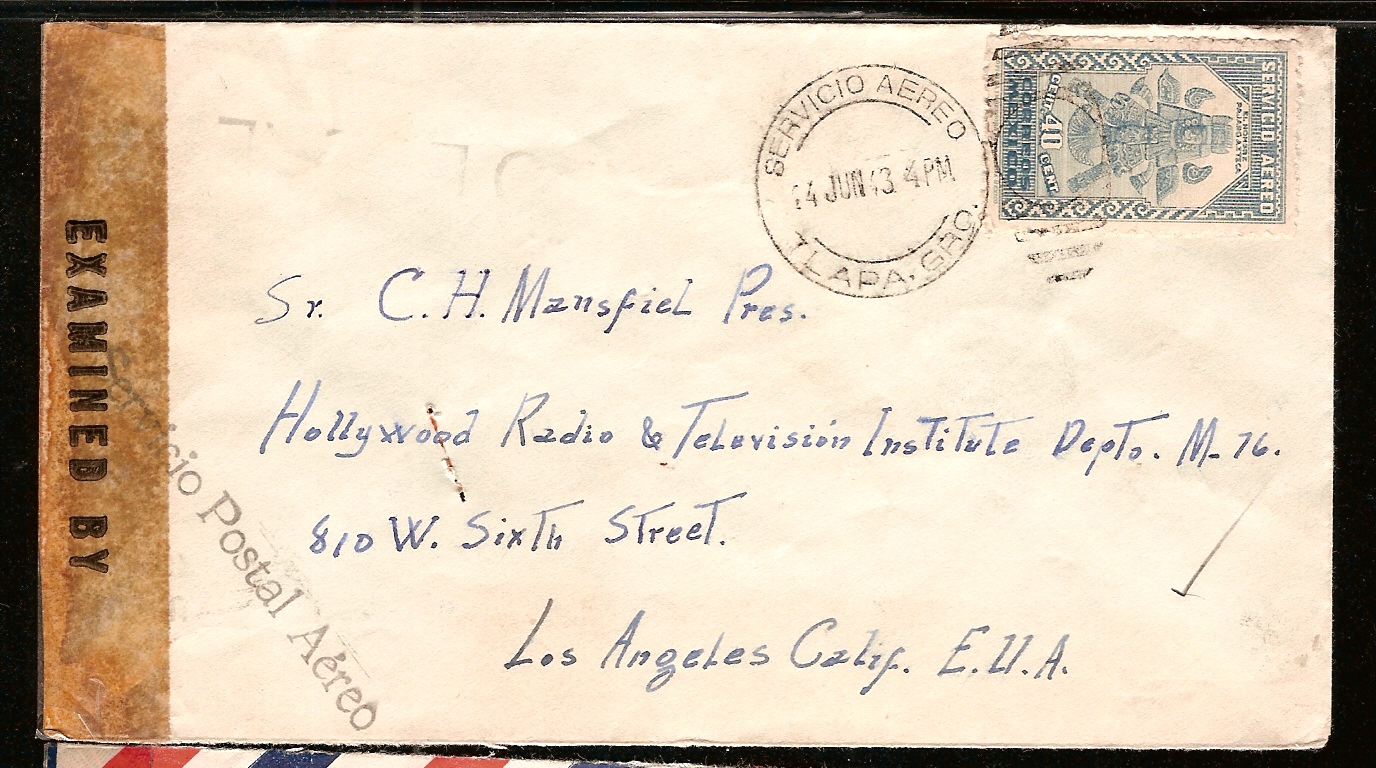 EXAMINED BY
Servicio Postal Aéreo
SERVICIO AEREO
14 JUN 43 4 PM
TLAPA, GRO.
SERVICIO AEREO
40
CENT.
CORREOS
MEXICO
Sr. C. H. Mansfiel Pres.
Hollywood Radio & Televisión Institute Depto. M-76.
810 W. Sixth Street.
Los Angeles Calif. E.U.A.